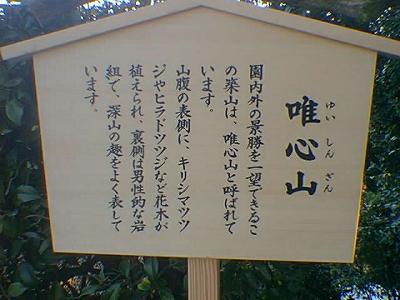 唯心山
ゆいしんざん
園内外の景勝を一望できるこ
の築山は、唯心山と呼ばれて
います。
山腹の表側に、キリシマツツ
ジやヒラドツツジなど花木が
植えられ、裏側は男性的な岩
組で、深山の趣をよく表して
います。